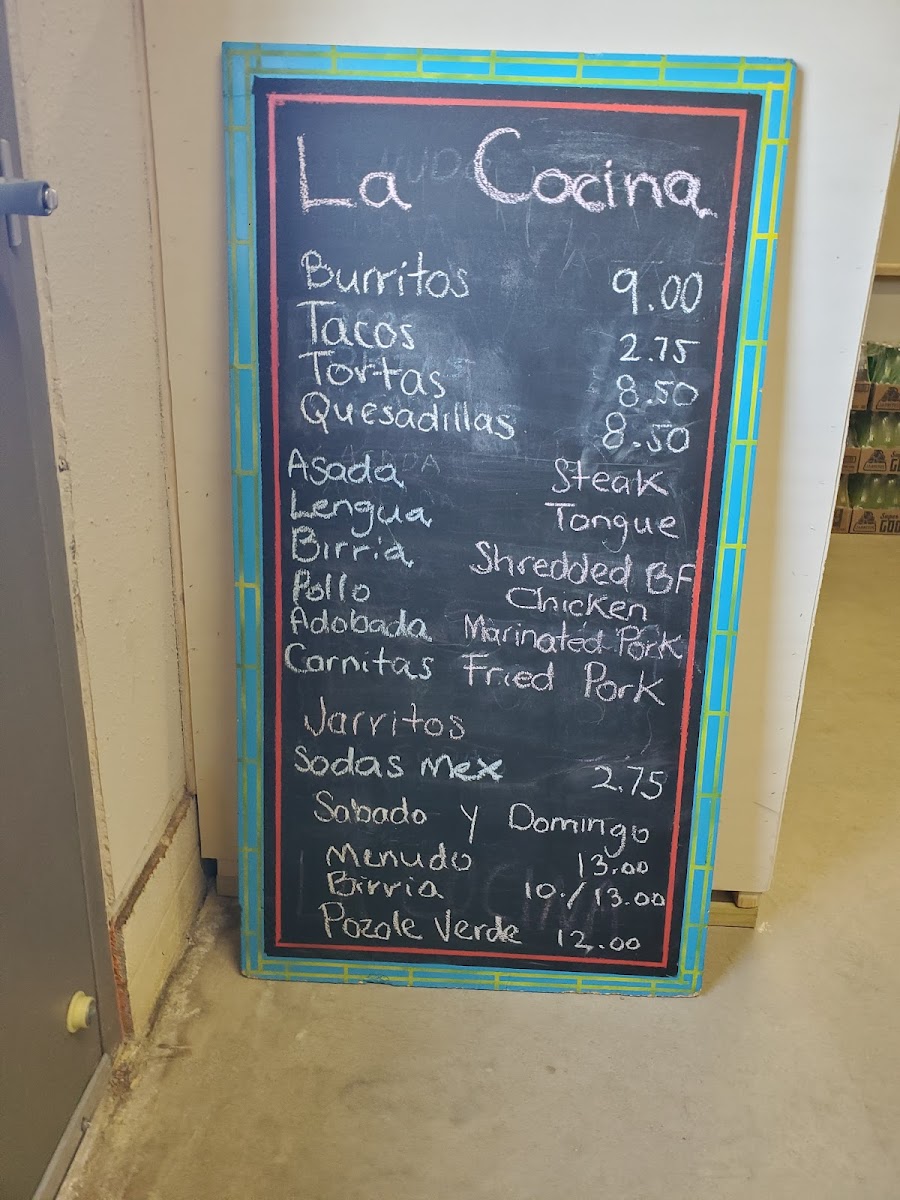 La Cocina
Burritos 9.00
Tacos 2.75
Tortas 8.50
Quesadillas 8.50
Asada Steak
Lengua Tongue
Birria Shredded BF
Pollo Chicken
Adobada Marinated Pork
Carnitas Fried Pork
Jarritos
Sodas Mex 2.75
Sabado y Domingo
Menudo 13.00
Birria 10./13.00
Pozole Verde 12.00